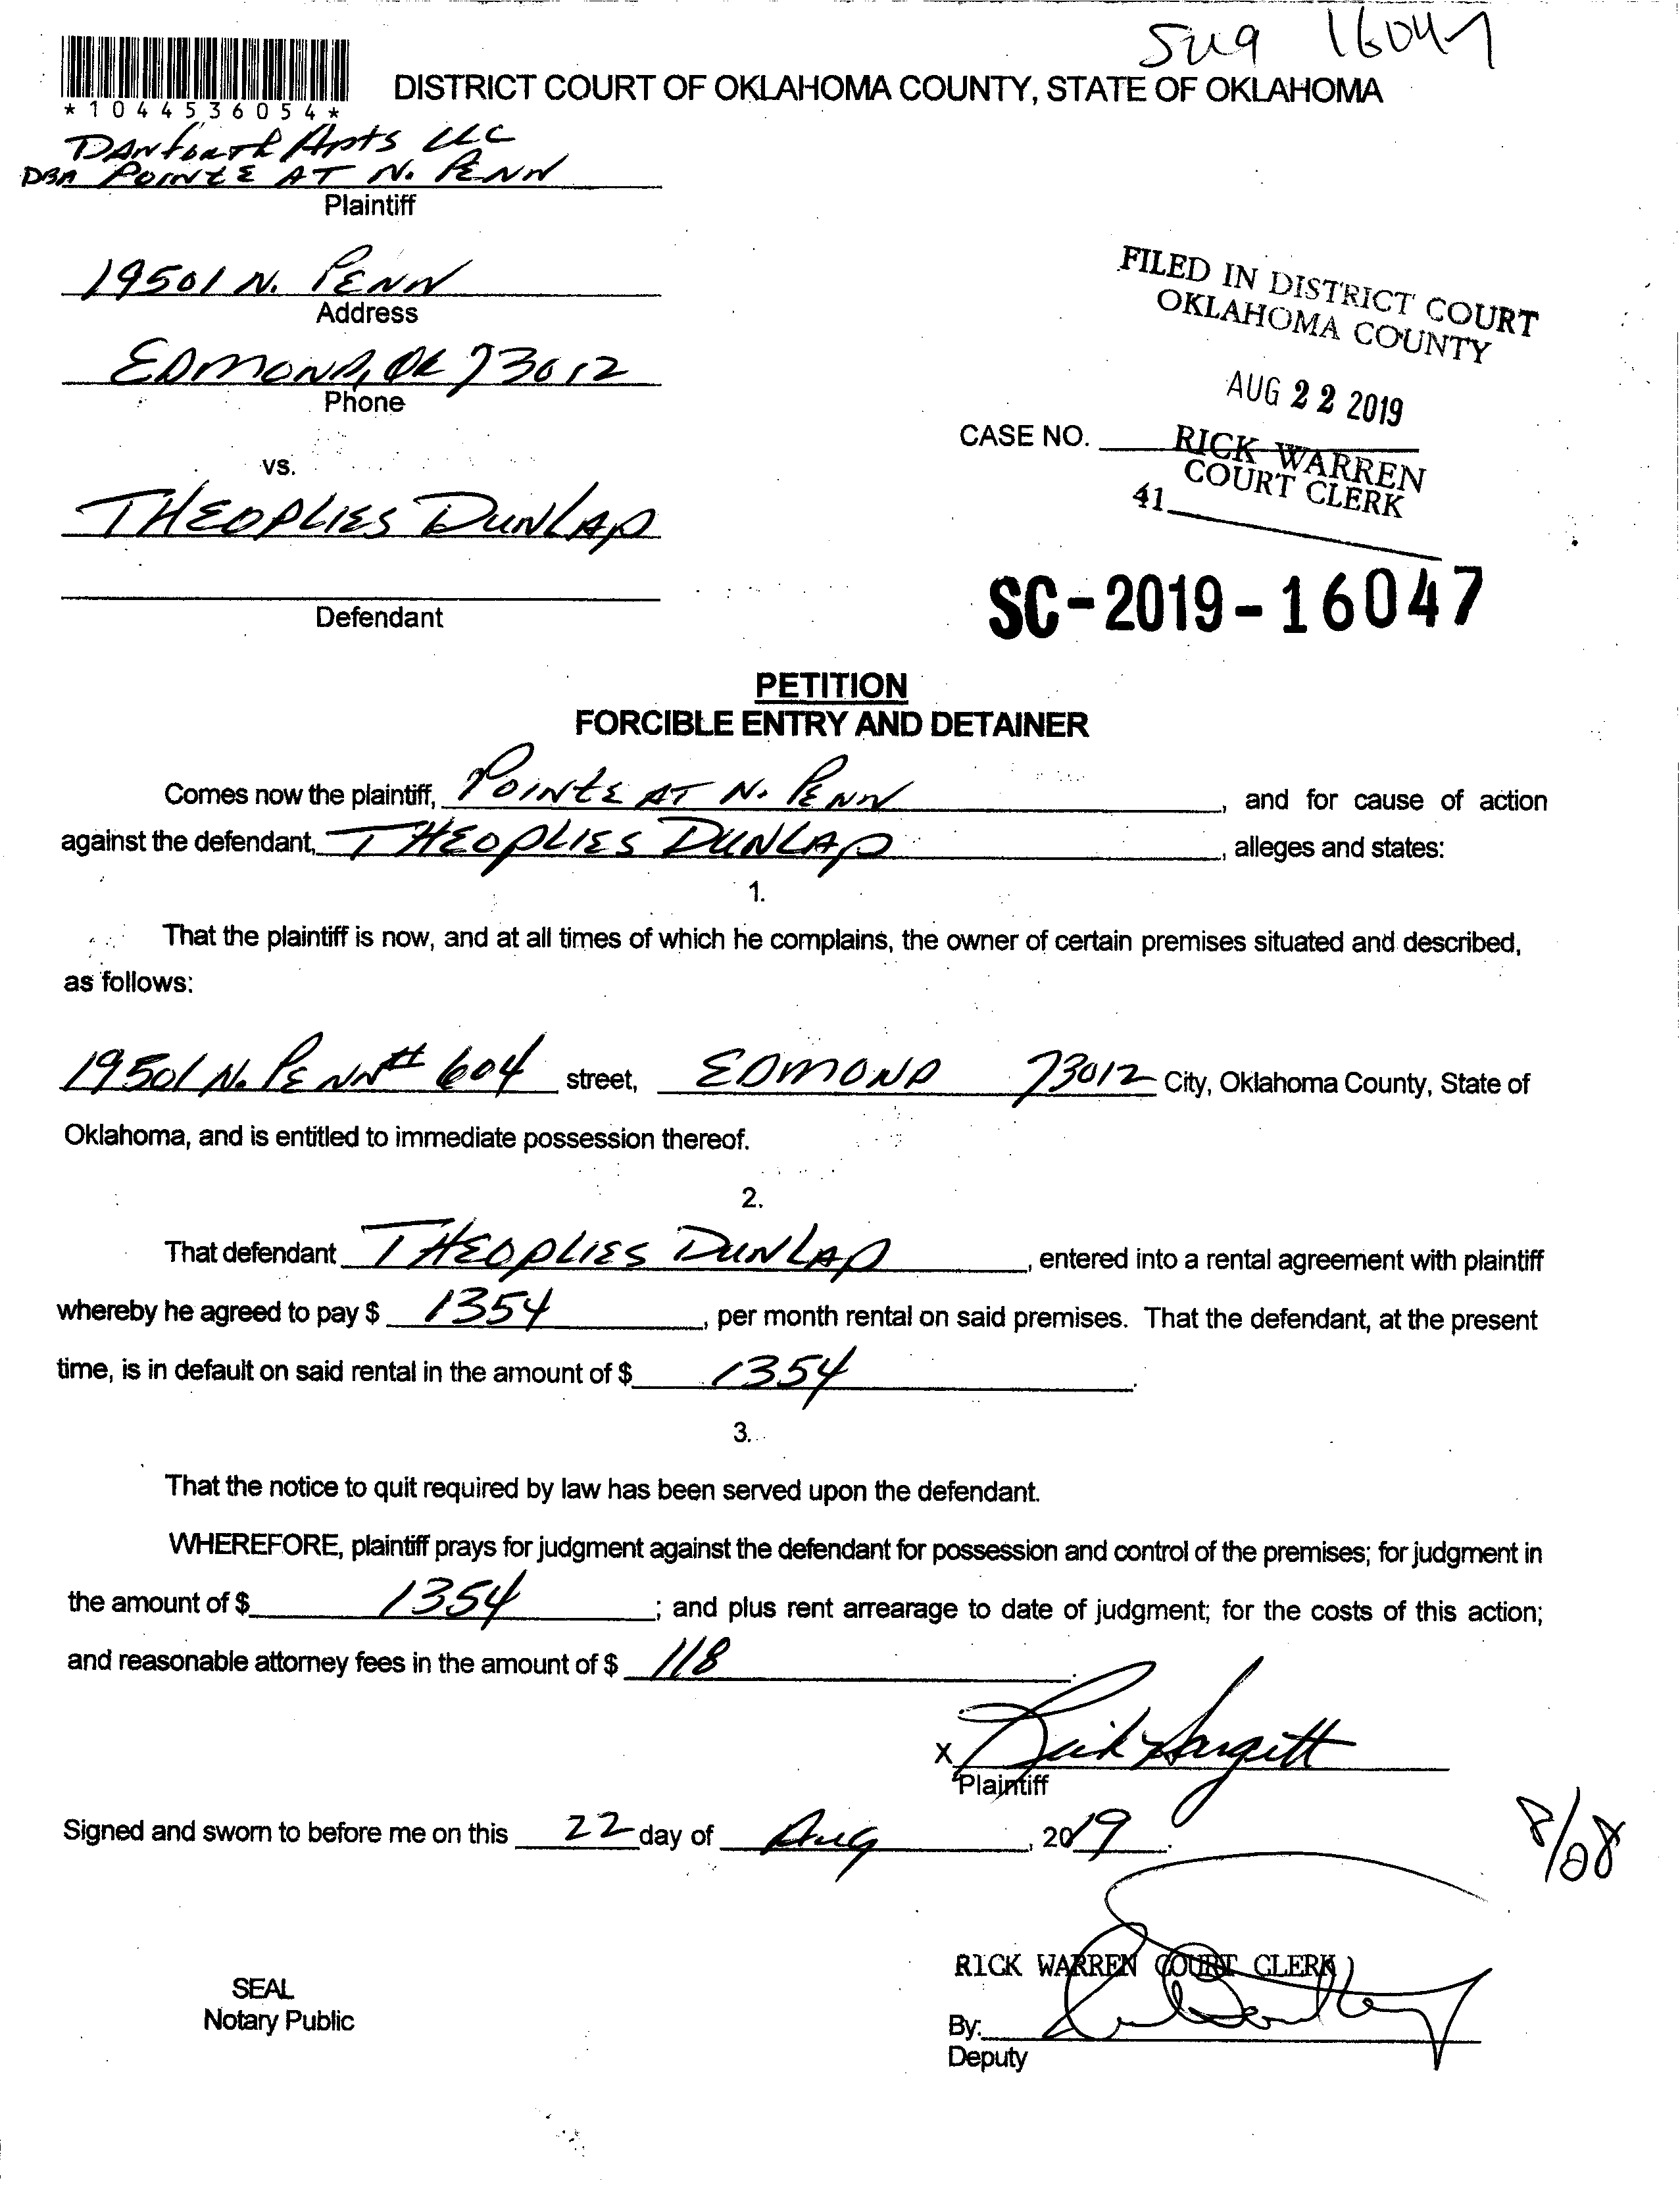 SC19 16047
*1044536054*
DISTRICT COURT OF OKLAHOMA COUNTY, STATE OF OKLAHOMA
DANforth Apts LLC
DBA POINTE AT N. PENN
Plaintiff
19501 N. PENN
Address
EDMOND, OK 73012
Phone
vs.
THEOPLIES DUNLAP
Defendant
FILED IN DISTRICT COURT
OKLAHOMA COUNTY
AUG 22 2019
CASE NO.
RICK WARREN
COURT CLERK
41
SC-2019-16047
PETITION
FORCIBLE ENTRY AND DETAINER
Comes now the plaintiff, POINTE AT N. PENN, and for cause of action
against the defendant, THEOPLIES DUNLAP, alleges and states:
1.
That the plaintiff is now, and at all times of which he complains, the owner of certain premises situated and described,
as follows:
19501 N. PENN # 604 street, EDMOND 73012 City, Oklahoma County, State of
Oklahoma, and is entitled to immediate possession thereof.
2.
That defendant THEOPLIES DUNLAP, entered into a rental agreement with plaintiff
whereby he agreed to pay $ 1354, per month rental on said premises. That the defendant, at the present
time, is in default on said rental in the amount of $ 1354.
3.
That the notice to quit required by law has been served upon the defendant.
WHEREFORE, plaintiff prays for judgment against the defendant for possession and control of the premises; for judgment in
the amount of $ 1354; and plus rent arrearage to date of judgment; for the costs of this action;
and reasonable attorney fees in the amount of $ 118.
X Rick Hargett
Plaintiff
Signed and sworn to before me on this 22 day of Aug, 2019.
8/28
RICK WARREN COURT CLERK
SEAL
Notary Public
By:
Deputy